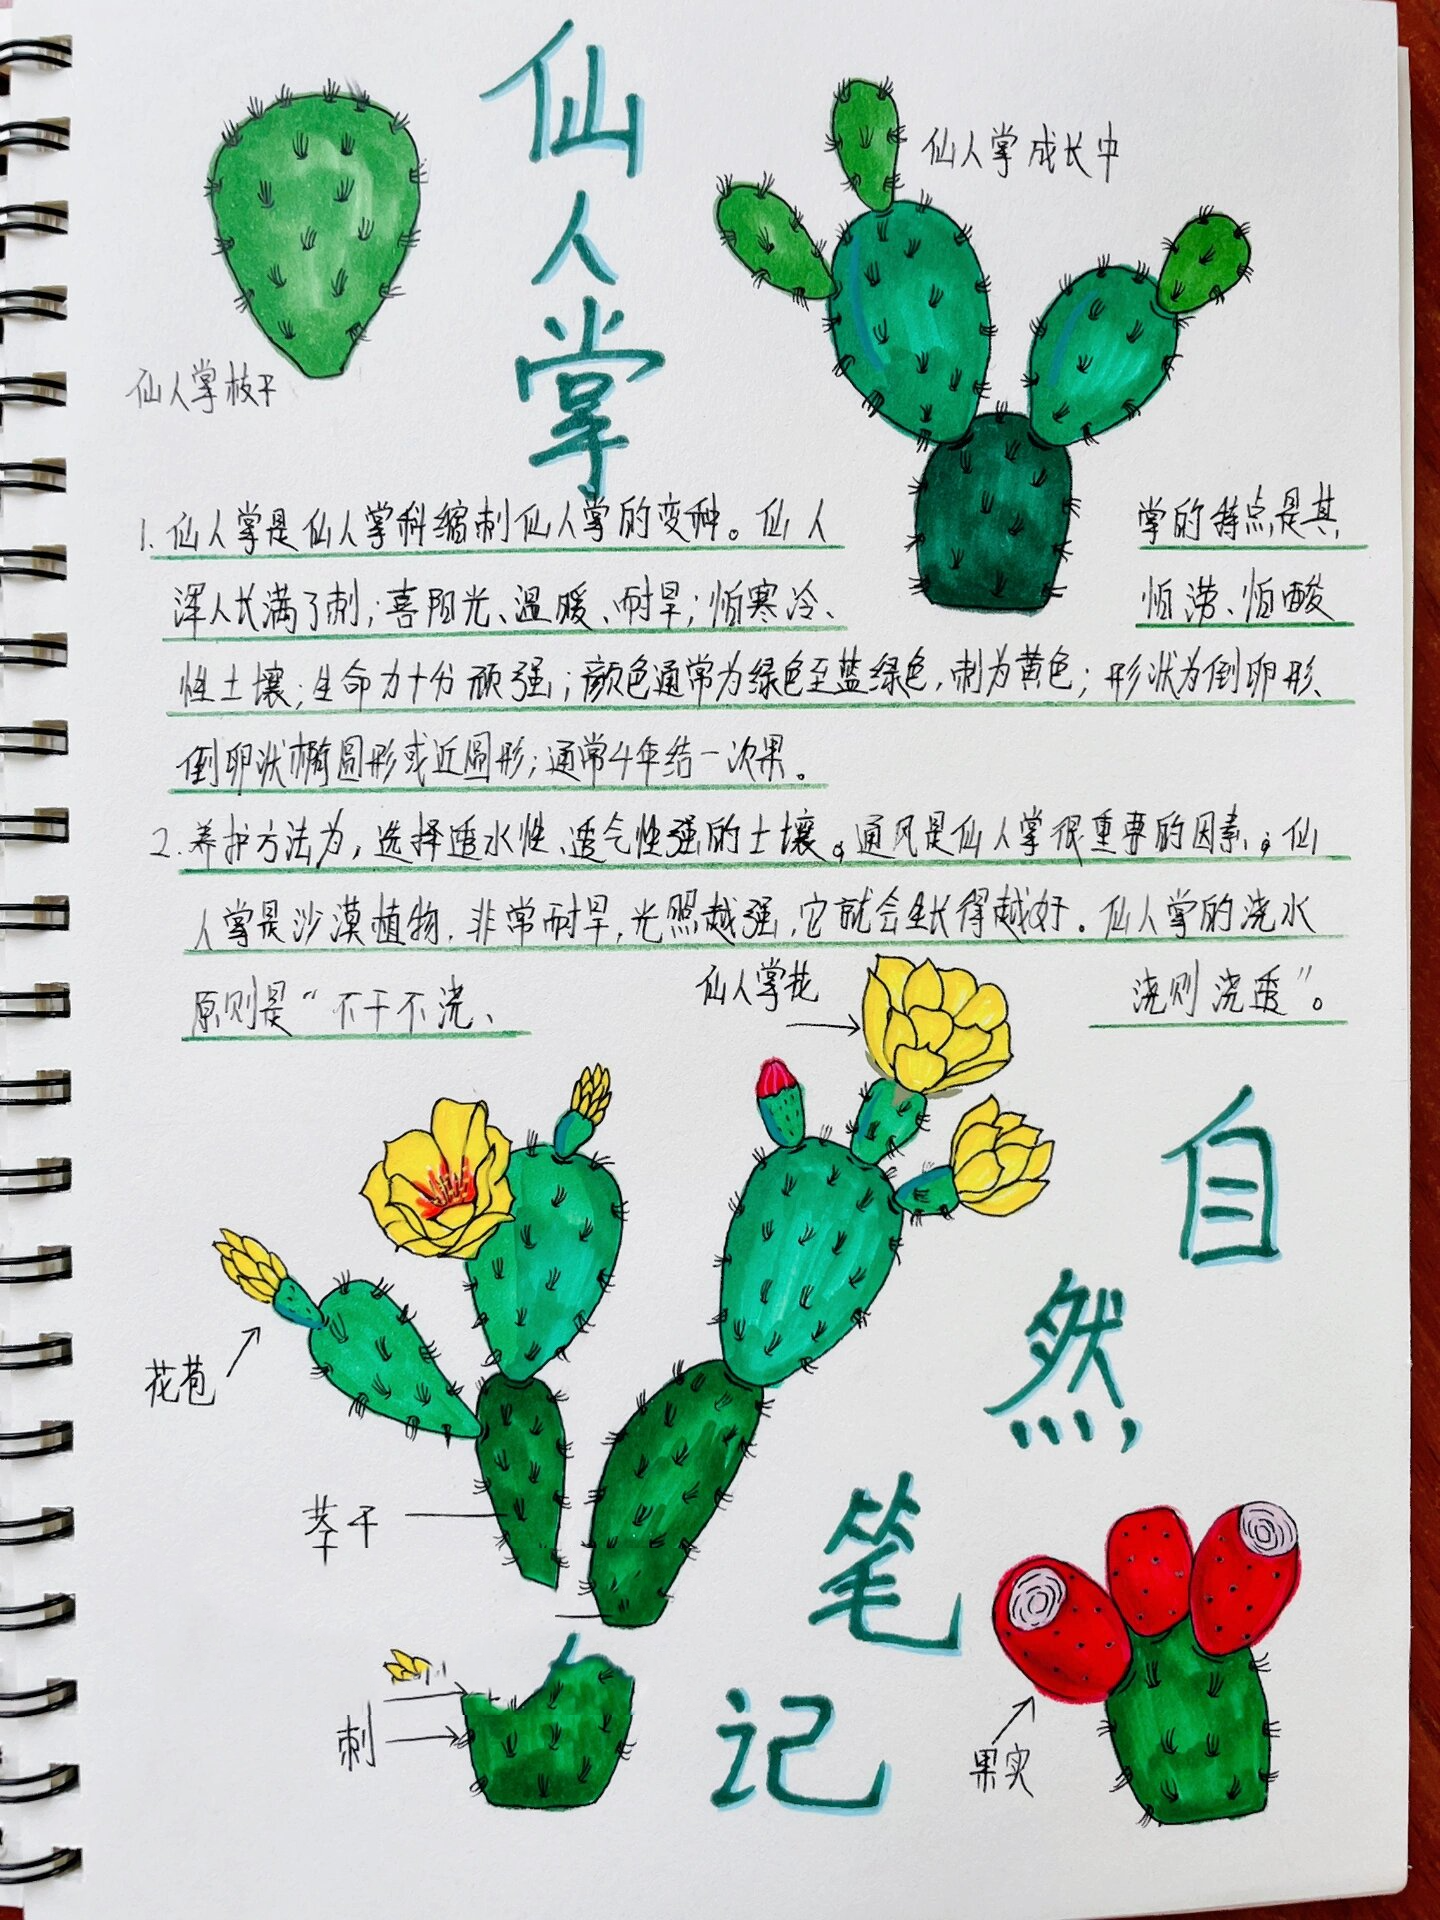 仙人掌
仙人掌成长中
仙人掌枝干
1. 仙人掌是仙人掌科缩刺仙人掌的变种。仙人掌的特点是其,
浑人长满了刺;喜阳光、温暖、耐旱;怕寒冷、怕涝、怕酸
性土壤;生命力十分顽强;颜色通常为绿色至蓝绿色,刺为黄色;形状为倒卵形、
倒卵状椭圆形或近圆形;通常4年结一次果。
2. 养护方法为,选择透水性、透气性强的土壤。通风是仙人掌很重要的因素。仙
人掌是沙漠植物,非常耐旱,光照越强,它就会生长得越好。仙人掌的浇水
原则是“不干不浇、浇则浇透”。
仙人掌花
花苞
茎干
刺
果实
自然笔记